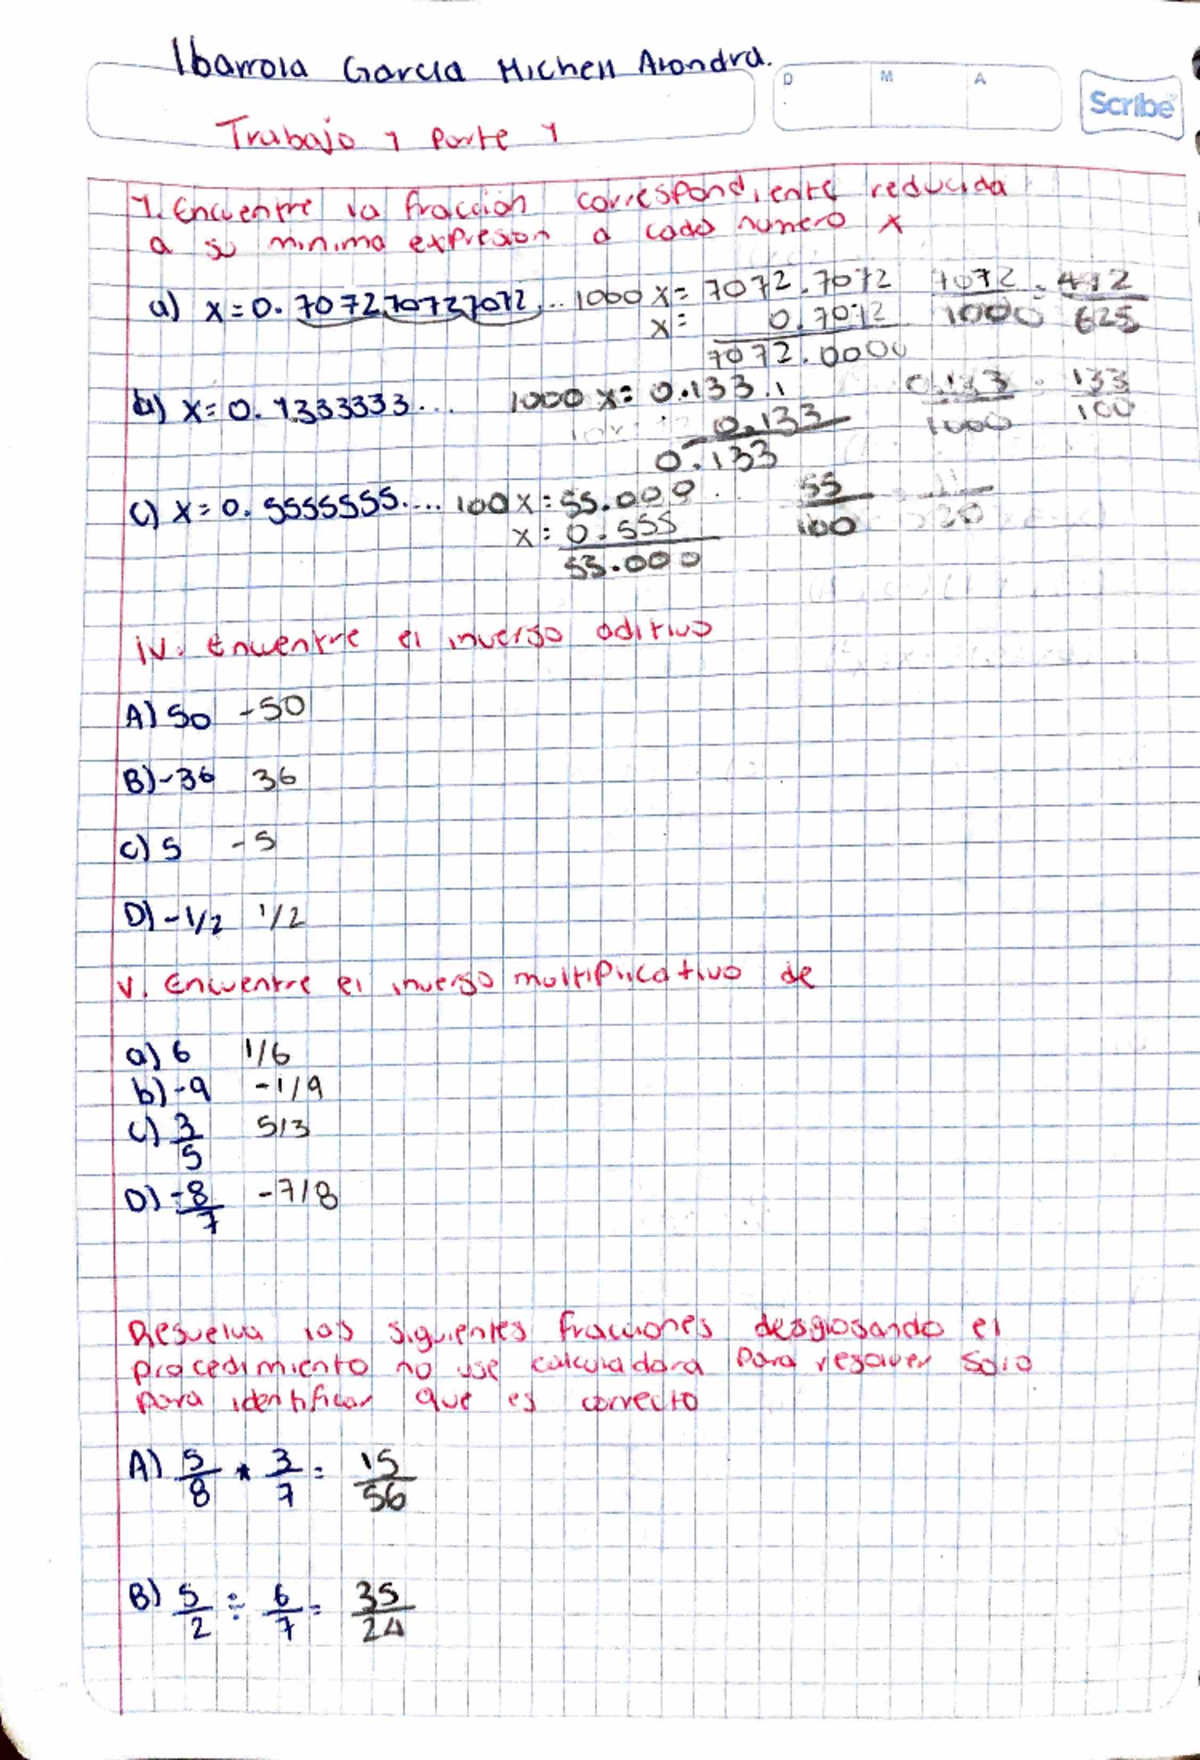 Ibarrola Garcia Michell Alondra.
D M A
Scribe
Trabajo 1 Parte 1
1. Encuentre la fracción correspondiente reducida
a su minima expresion a cada numero x
a) x=0.707270727072... 1000 x= 7072.7072 7072/1000 = 412/625
x= 0.7072
7072.0000
b) x=0.1333333... 1000 x= 0.133.1 0.133/1000 = 133/100
0.133
0.133
c) x=0.5555555.... 100x=55.000 55/100 11/20
x= 0.555
55.000
iv. Encuentre el inverso aditivo
A) 50 -50
B) -36 36
C) 5 -5
D) -1/2 1/2
V. Encuentre el inverso multiplicativo de
a) 6 1/6
b) -9 -1/9
c) 3/5 5/3
D) -8/7 -7/8
Resuelva las siguientes fracciones desglosando el
procedimiento no use calculadora para resolver solo
para identificar que es correcto
A) 5/8 * 3/7 = 15/56
B) 5/2 ÷ 6/7 = 35/24